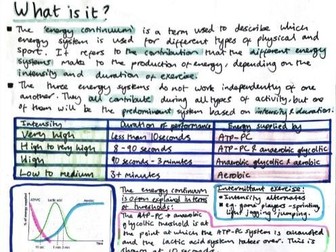 What is it?
• The "energy continuum" is a term used to describe which
energy system is used for different types of physical and
sport. It refers to the contribution that the different energy
systems makes to the production of energy, depending on the
intensity and duration of exercise.
• The three energy systems do not work independently of one
another. They all contribute during all types of activity, but one
of them will be the predominant system based on intensity & duration.
Intensity Duration of performance Energy supplied by
Very high less than 10 seconds ATP-PC
High to very high 8-90 seconds ATP-PC & anaerobic glycolitic
High 90 seconds - 3 minutes Anaerobic glycolitic & aerobic
Low to medium 3+ minutes Aerobic
The energy continuum is
often explained in terms of
thresholds:
The ATP-PC → anaerobic
glycolitic threshold is
the point at which the
ATP-PC system is exhausted
and the lactic acid
system takes over. This is
Intermittent exercise:
• Intensity alternates
e.g. game players - sprinting
jogging, jumping.